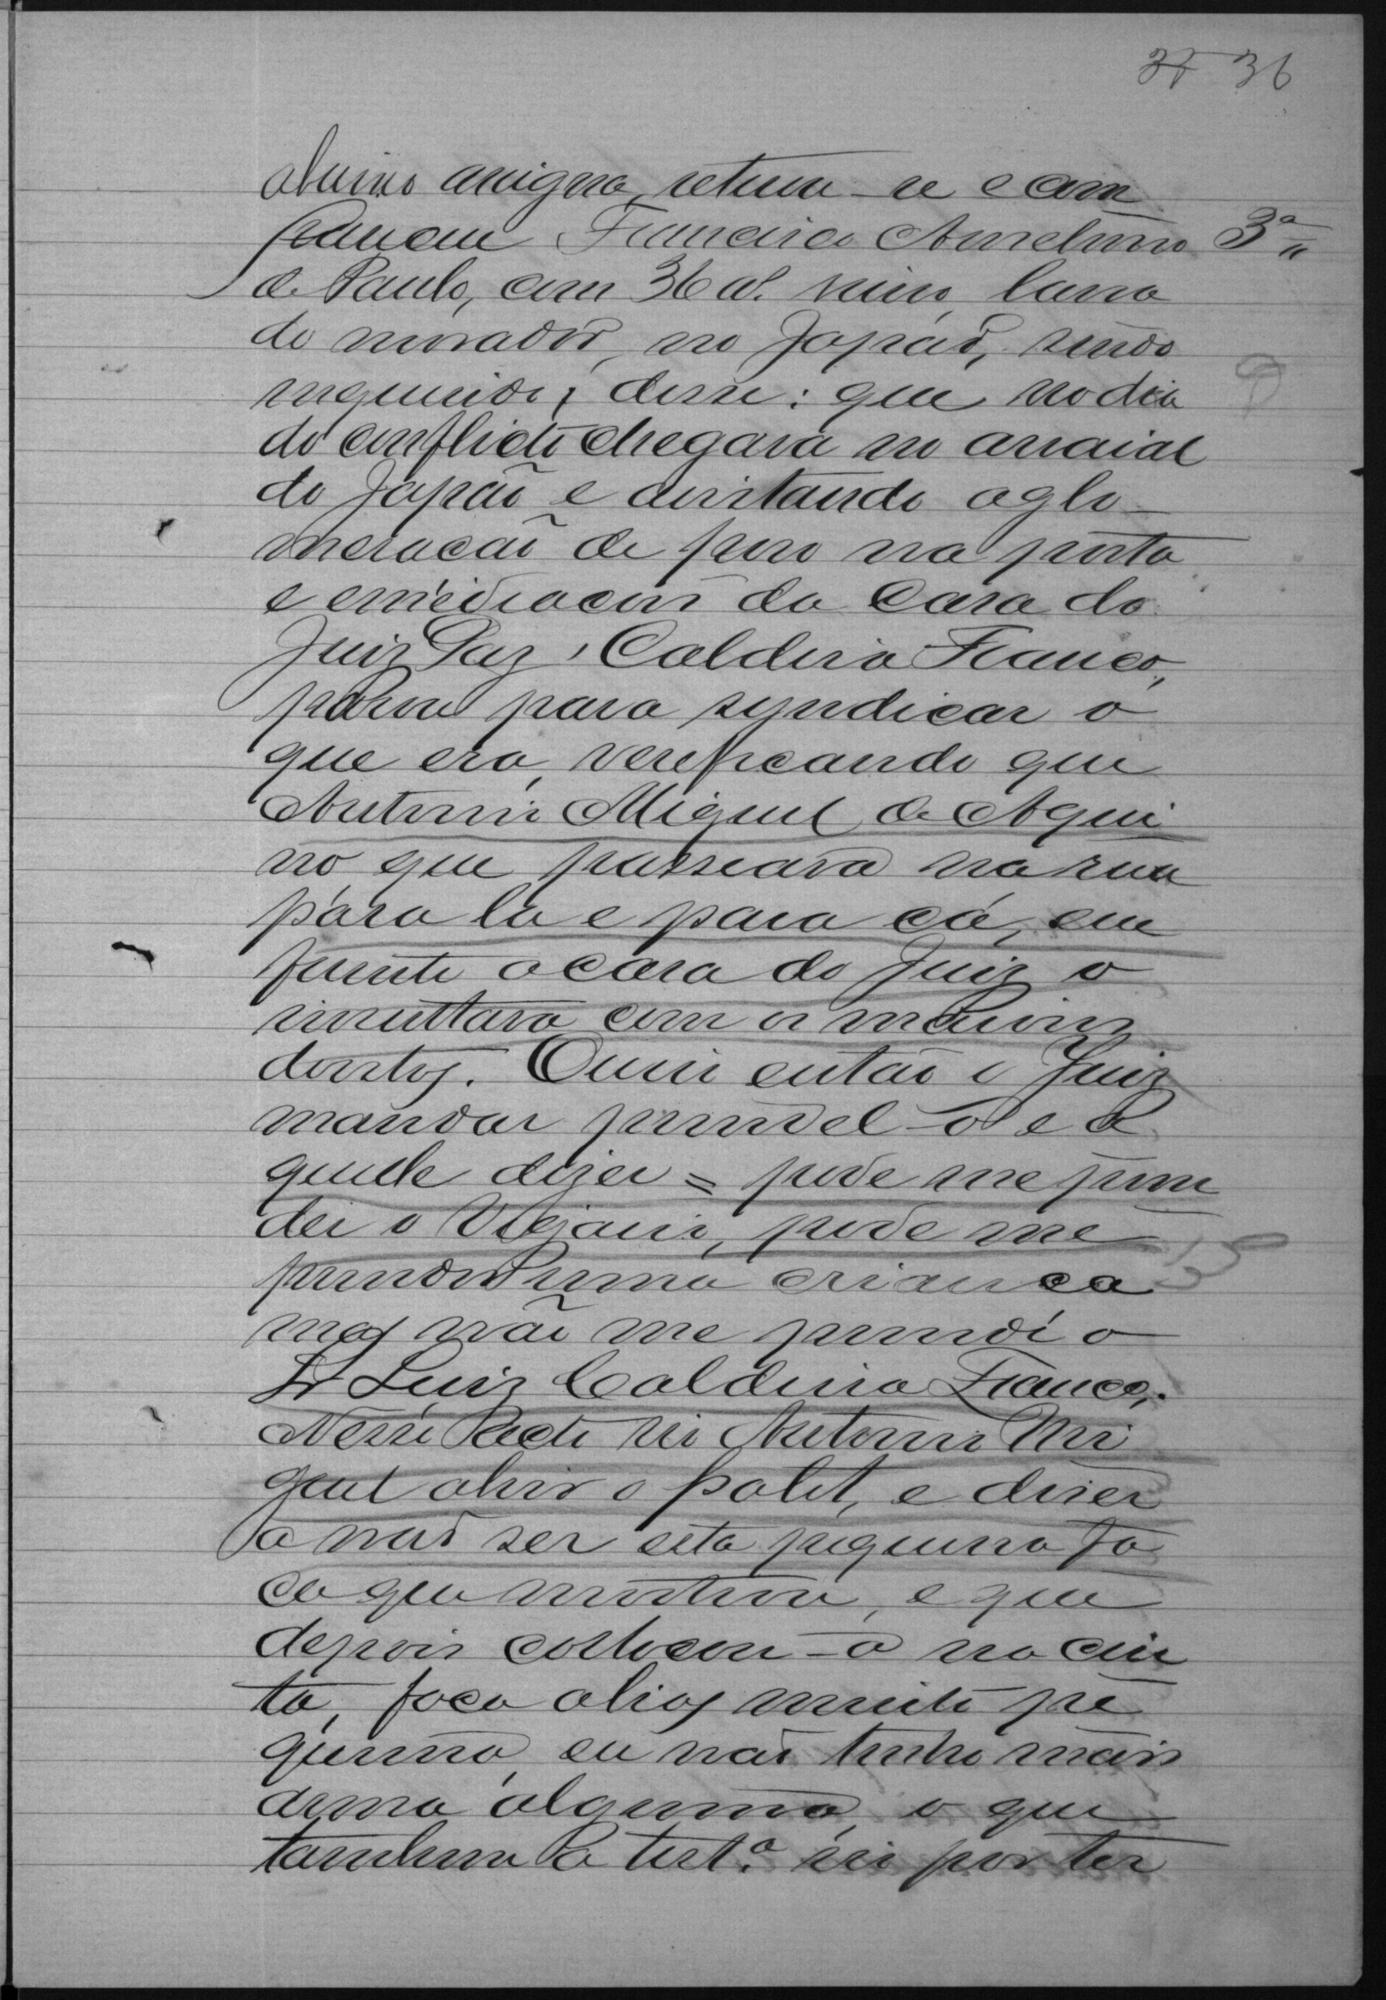 35 36
abaixo assigna, retirou-se e com
pareceu Francisco Anselmo 3ª
de Paulo, com 36 a. viuvo, lavra
do morador, no Japão, sendo
inquirido, disse: que no dia
do conflicto chegara no arraial
do Japão e avistando aglo-
meração de povo na porta
e emediacois da casa do
Juiz Paz, Caldeira Franco,
parou para syndicar o
que era, verificando que
Antonio Miguel de Aqui
no que passeava na rua
para la e para cá, em
frente a casa do Juiz o
insultava com os maiores
doestos. Ouvio então o Juiz
mandar prendel-o e a
quelle dizer = pode me pren
der o Vigario, pode me
prender uma criança
mas não me prende o
Sr Luiz Caldeira Franco.
Nesse acto vio Antonio Mi
guel abrir o palet, e dizer
a não ser esta pequena fa
ca que mostrou, e que
depois collocou-a na cin
ta, faca alias muito pe
quena, eu não tenho mais
arma alguma, o que
tambem a test.ª vio por ter